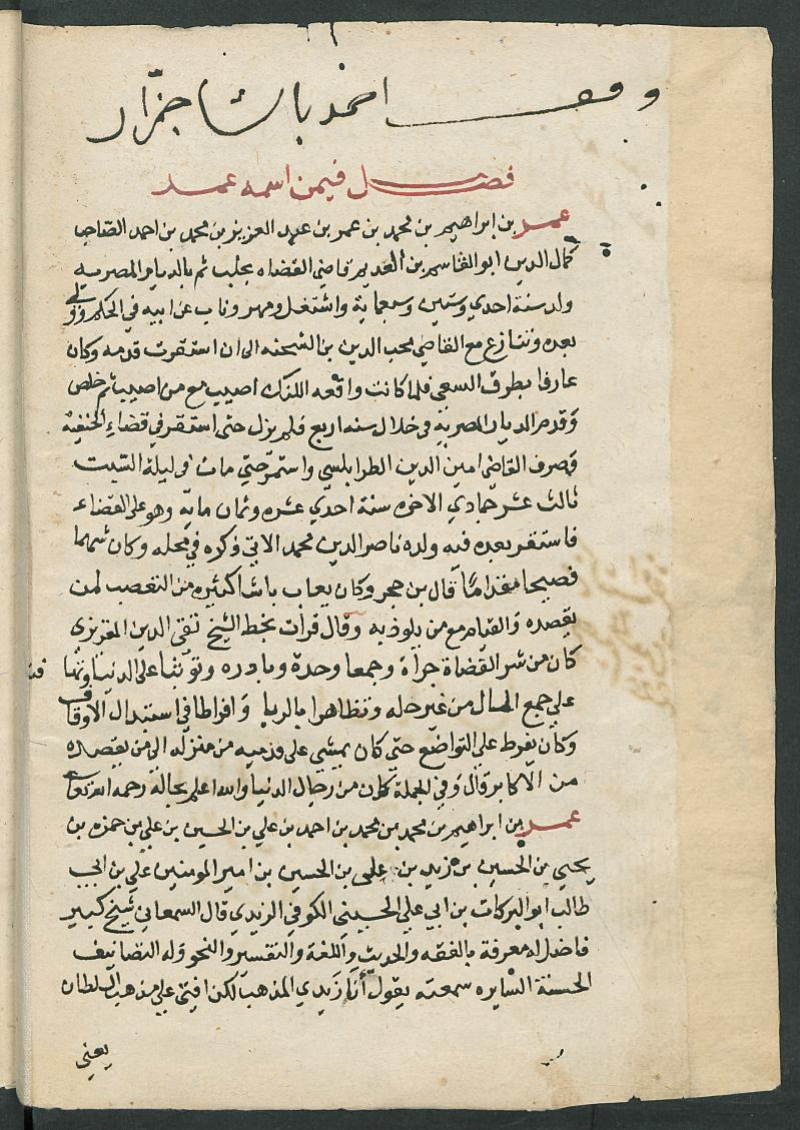 وقف احمد باشا جزّار
فصل فيمن اسمه عمر
عمر بن ابراهيم بن محمد بن عمر بن عبد العزيز بن محمد بن احمد الصاحب
كمال الدين ابو القاسم بن العديم قاضي القضاه بحلب ثم بالديار المصريه
ولد سنة احدي وستين وسبعماية واشتغل ومهر وناب عن ابيه في الحكم وولي
بعده وتنازع مع القاضي محب الدين بن الشحنه الى ان استقرت قدمه وكان
عارفا بطرق السعي فلما كانت واقعه اللنك اصيب مع من اصيب ثم خلص
وقدم الديار المصريه في خلال سنه اربع فلم يزل حتى استقر في قضاء الحنفيه
وصرف القاضي امين الدين الطرابلسي واستمر حتي مات في ليلة السبت
ثالث عشر جمادي الاخره سنة احدي عشره وثمان مايه وهو على القضاء
فاستقر بعده فيه ولده ناصر الدين محمد الاتي ذكره في محله وكان شهما
فصيحا مقداما قال بن حجر وكان يعاب باشيا كثيره من التعصب لمن
يقصده والقيام مع من يلوذ به وقال قرات بخط الشيخ تقي الدين المقريزي
كان من شر القضاة جراة وجمعا وحدة وبادره وتوثبا على الدنيا وتهافتا
علي جمع المال من غير حله وتظاهرا بالربا وافراطا في استبدال الاوقاف
وكان يفرط علي التواضع حتي كان يمشي على قدميه من منزله الى من يقصده
من الاكابر قال وفي الجملة كان من رجال الدنيا والله اعلم بحاله رحمه الله تعالى
عمر بن ابراهيم بن محمد بن محمد بن احمد بن علي بن الحسين بن علي بن حمزه بن
يحيي بن الحسين بن زيد بن علي بن الحسين بن امير المومنين علي بن ابي
طالب ابو البركات بن ابي علي الحسيني الكوفي الزيدي قال السمعاني شيخ كبير
فاضل له معرفة بالفقه والحديث واللغة والتفسير والنحو وله التصانيف
الحسنة السايره سمعته يقول أنا زيدي المذهب لكن افتي على مذهب السلطان
يعني